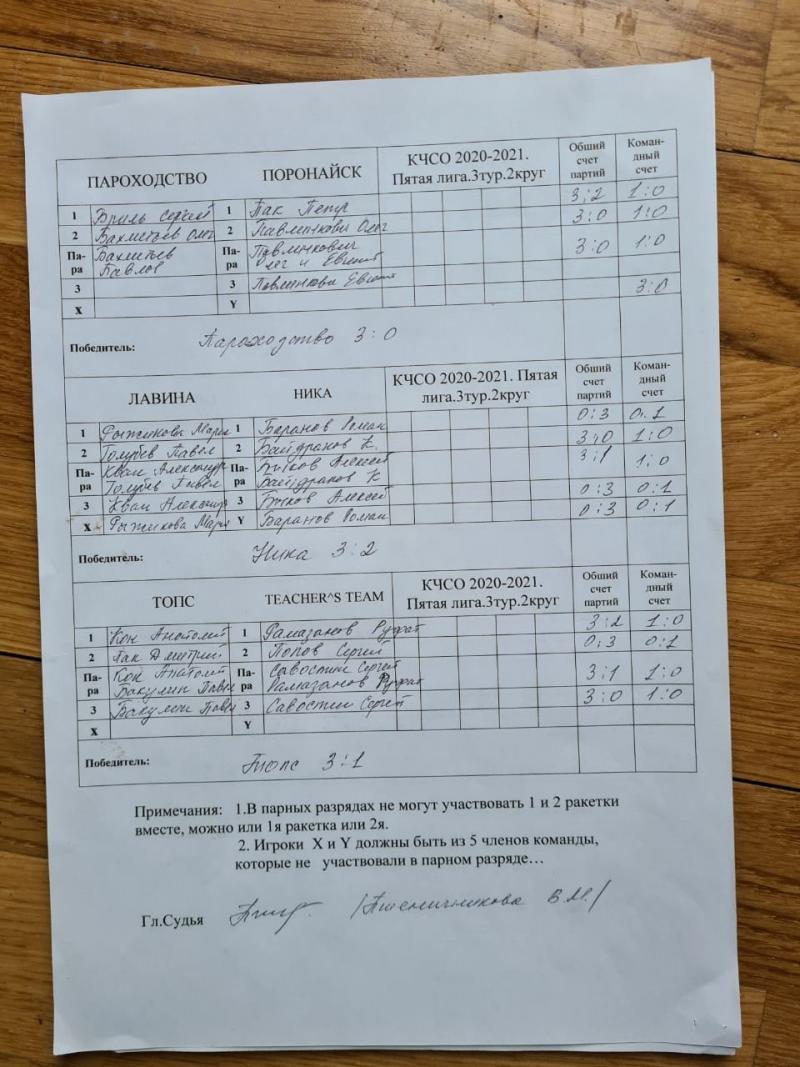 ПАРОХОДСТВО ПОРОНАЙСК КЧСО 2020-2021. Пятая лига.3тур.2круг Общий счет партий Коман-дный счет
1 Бриль Сергей 1 Пак Петр 3:2 1:0
2 Бахметьев Олег 2 Павленкович Олег 3:0 1:0
Па-ра Бахметьев Павлов Па-ра Павленкович Олег и Евгений 3:0 1:0
3 3 Евгений 3:0
X Y
Победитель: Пароходство 3:0
ЛАВИНА НИКА КЧСО 2020-2021. Пятая лига.3тур.2круг Общий счет партий Коман-дный счет
1 Рыжикова Мария 1 Баранов Роман 0:3 0:1
2 Голубев Павел 2 Байдраков К. 3:0 1:0
Па-ра Кван Александр Голубев Павел Па-ра Быков Алексей Байдраков К. 3:1 1:0
3 Кван Александр 3 Быков Алексей 0:3 0:1
X Рыжикова Мария Y Баранов Роман 0:3 0:1
Победитель: Ника 3:2
ТОПС TEACHER^S TEAM КЧСО 2020-2021. Пятая лига.3тур.2круг Общий счет партий Коман-дный счет
1 Кон Анатолий 1 Рамазанов Руфат 3:2 1:0
2 Пак Дмитрий 2 Попов Сергей 0:3 0:1
Па-ра Кон Анатолий Бакулин Павел Па-ра Савостин Сергей Рамазанов Руфат 3:1 1:0
3 Бакулин Павел 3 Савостин Сергей 3:0 1:0
X Y
Победитель: Топс 3:1
Примечания: 1.В парных разрядах не могут участвовать 1 и 2 ракетки
вместе, можно или 1я ракетка или 2я.
2. Игроки X и Y должны быть из 5 членов команды,
которые не участвовали в парном разряде…
Гл.Судья /Пшеничникова В.М./